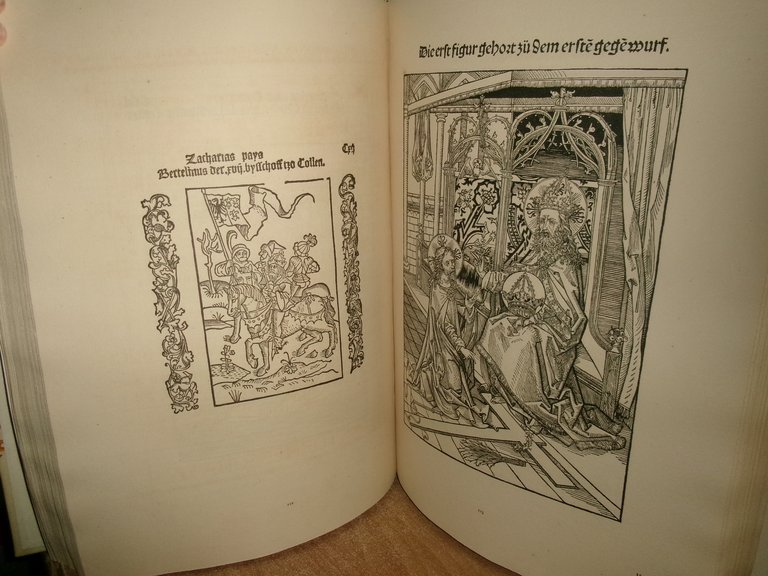 Zacharias paya
Cxij
Bertelinus der .xvij. bysschoff tzo Collen.
Die erst figur gehort zů dem erstē gegēwurf.